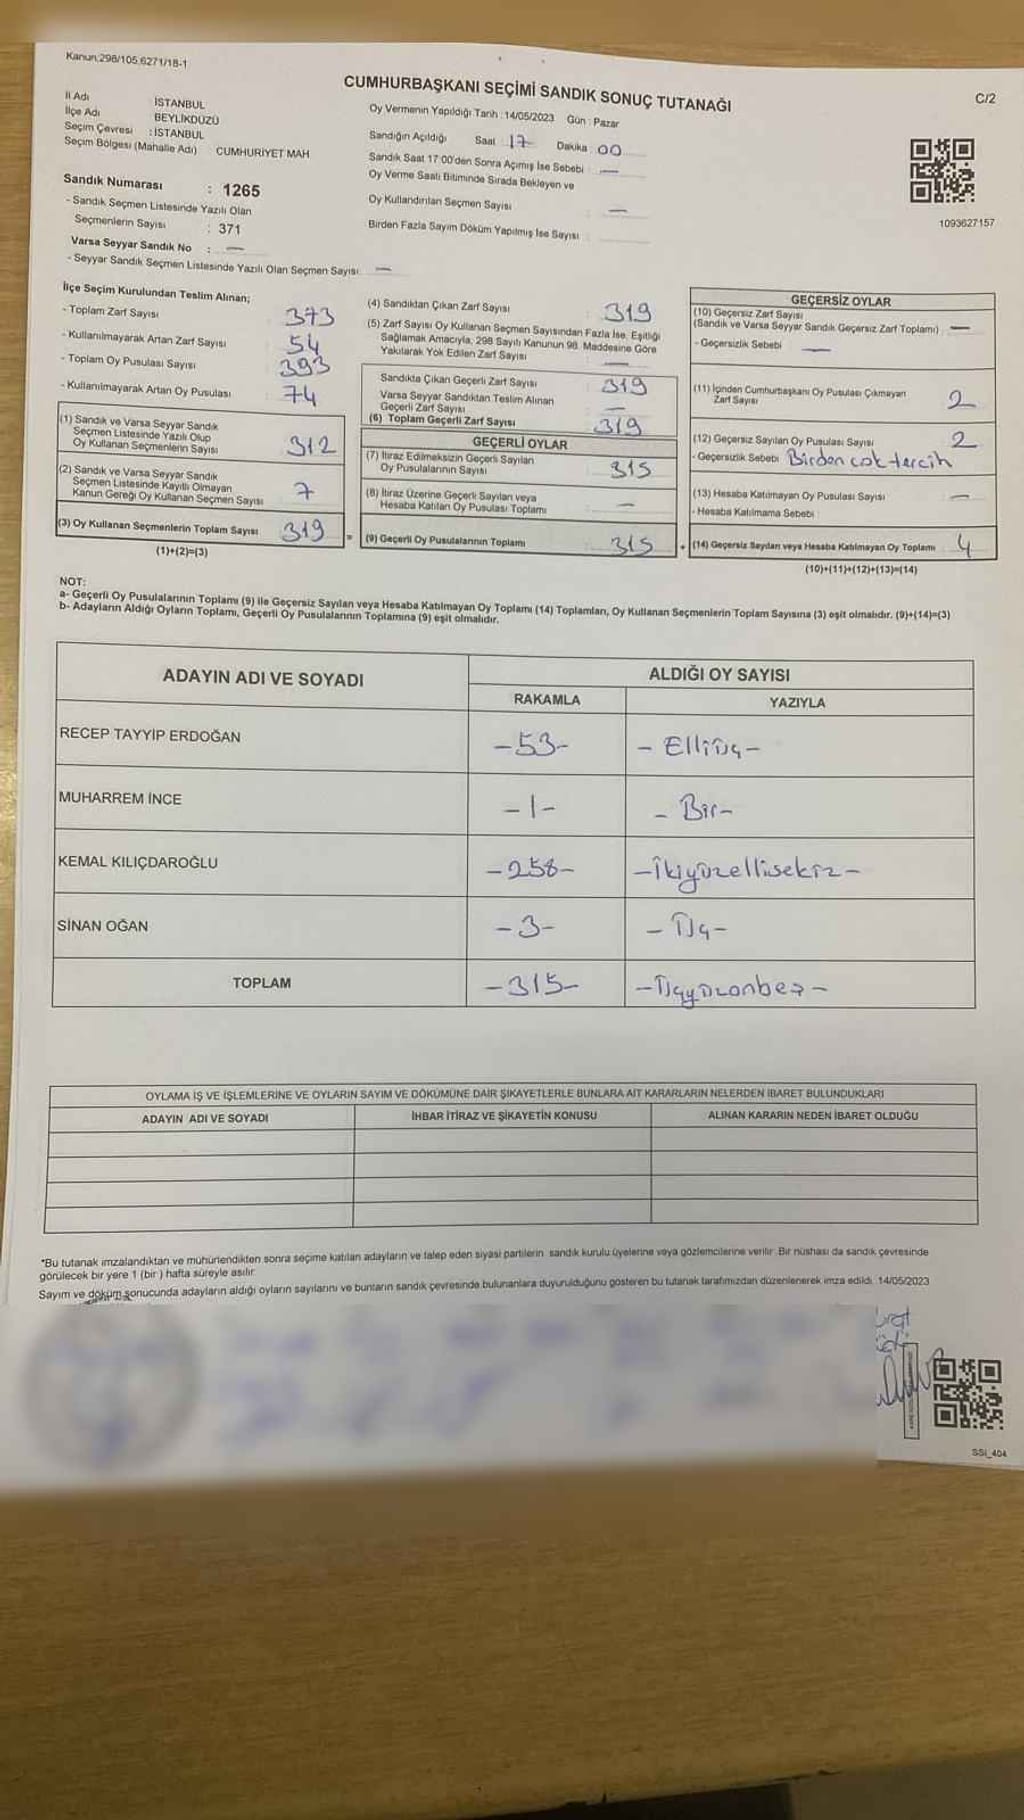 Kanun;298/105,6271/18-1
CUMHURBAŞKANI SEÇİMİ SANDIK SONUÇ TUTANAĞI
C/2
İl Adı İSTANBUL
İlçe Adı BEYLİKDÜZÜ
Seçim Çevresi : İSTANBUL
Seçim Bölgesi (Mahalle Adı) CUMHURİYET MAH
Sandık Numarası : 1265
- Sandık Seçmen Listesinde Yazılı Olan
Seçmenlerin Sayısı : 371
Varsa Seyyar Sandık No : —
- Seyyar Sandık Seçmen Listesinde Yazılı Olan Seçmen Sayısı: —
Oy Vermenin Yapıldığı Tarih : 14/05/2023 Gün : Pazar
Sandığın Açıldığı Saat : 17 Dakika : 00
Sandık Saat 17:00'den Sonra Açımış İse Sebebi : —
Oy Verme Saati Bitiminde Sırada Bekleyen ve
Oy Kullandırılan Seçmen Sayısı : —
Birden Fazla Sayım Döküm Yapılmış İse Sayısı :
1093627157
İlçe Seçim Kurulundan Teslim Alınan;
- Toplam Zarf Sayısı : 373
- Kullanılmayarak Artan Zarf Sayısı : 54
- Toplam Oy Pusulası Sayısı : 393
- Kullanılmayarak Artan Oy Pusulası : 74
(1) Sandık ve Varsa Seyyar Sandık
Seçmen Listesinde Yazılı Olup
Oy Kullanan Seçmenlerin Sayısı 312
(2) Sandık ve Varsa Seyyar Sandık
Seçmen Listesinde Kayıtlı Olmayan
Kanun Gereği Oy Kullanan Seçmen Sayısı 7
(3) Oy Kullanan Seçmenlerin Toplam Sayısı 319 =
(1)+(2)=(3)
(4) Sandıktan Çıkan Zarf Sayısı : 319
(5) Zarf Sayısı Oy Kullanan Seçmen Sayısından Fazla İse, Eşitliği
Sağlamak Amacıyla, 298 Sayılı Kanunun 98. Maddesine Göre
Yakılarak Yok Edilen Zarf Sayısı —
Sandıkta Çıkan Geçerli Zarf Sayısı : 319
Varsa Seyyar Sandıktan Teslim Alınan
Geçerli Zarf Sayısı —
(6) Toplam Geçerli Zarf Sayısı 319
GEÇERLİ OYLAR
(7) İtiraz Edilmeksizin Geçerli Sayılan
Oy Pusulalarının Sayısı 315
(8) İtiraz Üzerine Geçerli Sayılan veya
Hesaba Katılan Oy Pusulası Toplamı —
(9) Geçerli Oy Pusulalarının Toplamı 315 +
GEÇERSİZ OYLAR
(10) Geçersiz Zarf Sayısı
(Sandık ve Varsa Seyyar Sandık Geçersiz Zarf Toplamı) —
- Geçersizlik Sebebi : —
(11) İçinden Cumhurbaşkanı Oy Pusulası Çıkmayan
Zarf Sayısı 2
(12) Geçersiz Sayılan Oy Pusulası Sayısı 2
- Geçersizlik Sebebi : Birden çok tercih
(13) Hesaba Katılmayan Oy Pusulası Sayısı —
- Hesaba Katılmama Sebebi :
(14) Geçersiz Sayılan veya Hesaba Katılmayan Oy Toplamı 4
(10)+(11)+(12)+(13)=(14)
NOT:
a- Geçerli Oy Pusulalarının Toplamı (9) ile Geçersiz Sayılan veya Hesaba Katılmayan Oy Toplamı (14) Toplamları, Oy Kullanan Seçmenlerin Toplam Sayısına (3) eşit olmalıdır. (9)+(14)=(3)
b- Adayların Aldığı Oyların Toplamı, Geçerli Oy Pusulalarının Toplamına (9) eşit olmalıdır.
ADAYIN ADI VE SOYADI ALDIĞI OY SAYISI
RAKAMLA YAZIYLA
RECEP TAYYİP ERDOĞAN -53- - Elliüç -
MUHARREM İNCE -1- - Bir -
KEMAL KILIÇDAROĞLU -258- -İkiyüzellisekiz-
SİNAN OĞAN -3- - Üç -
TOPLAM -315- -Üçyüzonbeş-
OYLAMA İŞ VE İŞLEMLERİNE VE OYLARIN SAYIM VE DÖKÜMÜNE DAİR ŞİKAYETLERLE BUNLARA AİT KARARLARIN NELERDEN İBARET BULUNDUKLARI
ADAYIN ADI VE SOYADI İHBAR İTİRAZ VE ŞİKAYETİN KONUSU ALINAN KARARIN NEDEN İBARET OLDUĞU
*Bu tutanak imzalandıktan ve mühürlendikten sonra seçime katılan adayların ve talep eden siyasi partilerin sandık kurulu üyelerine veya gözlemcilerine verilir. Bir nüshası da sandık çevresinde
görülecek bir yere 1 (bir) hafta süreyle asılır.
Sayım ve döküm sonucunda adayların aldığı oyların sayılarını ve bunların sandık çevresinde bulunanlara duyurulduğunu gösteren bu tutanak tarafımızdan düzenlenerek imza edildi. 14/05/2023
SSI_404